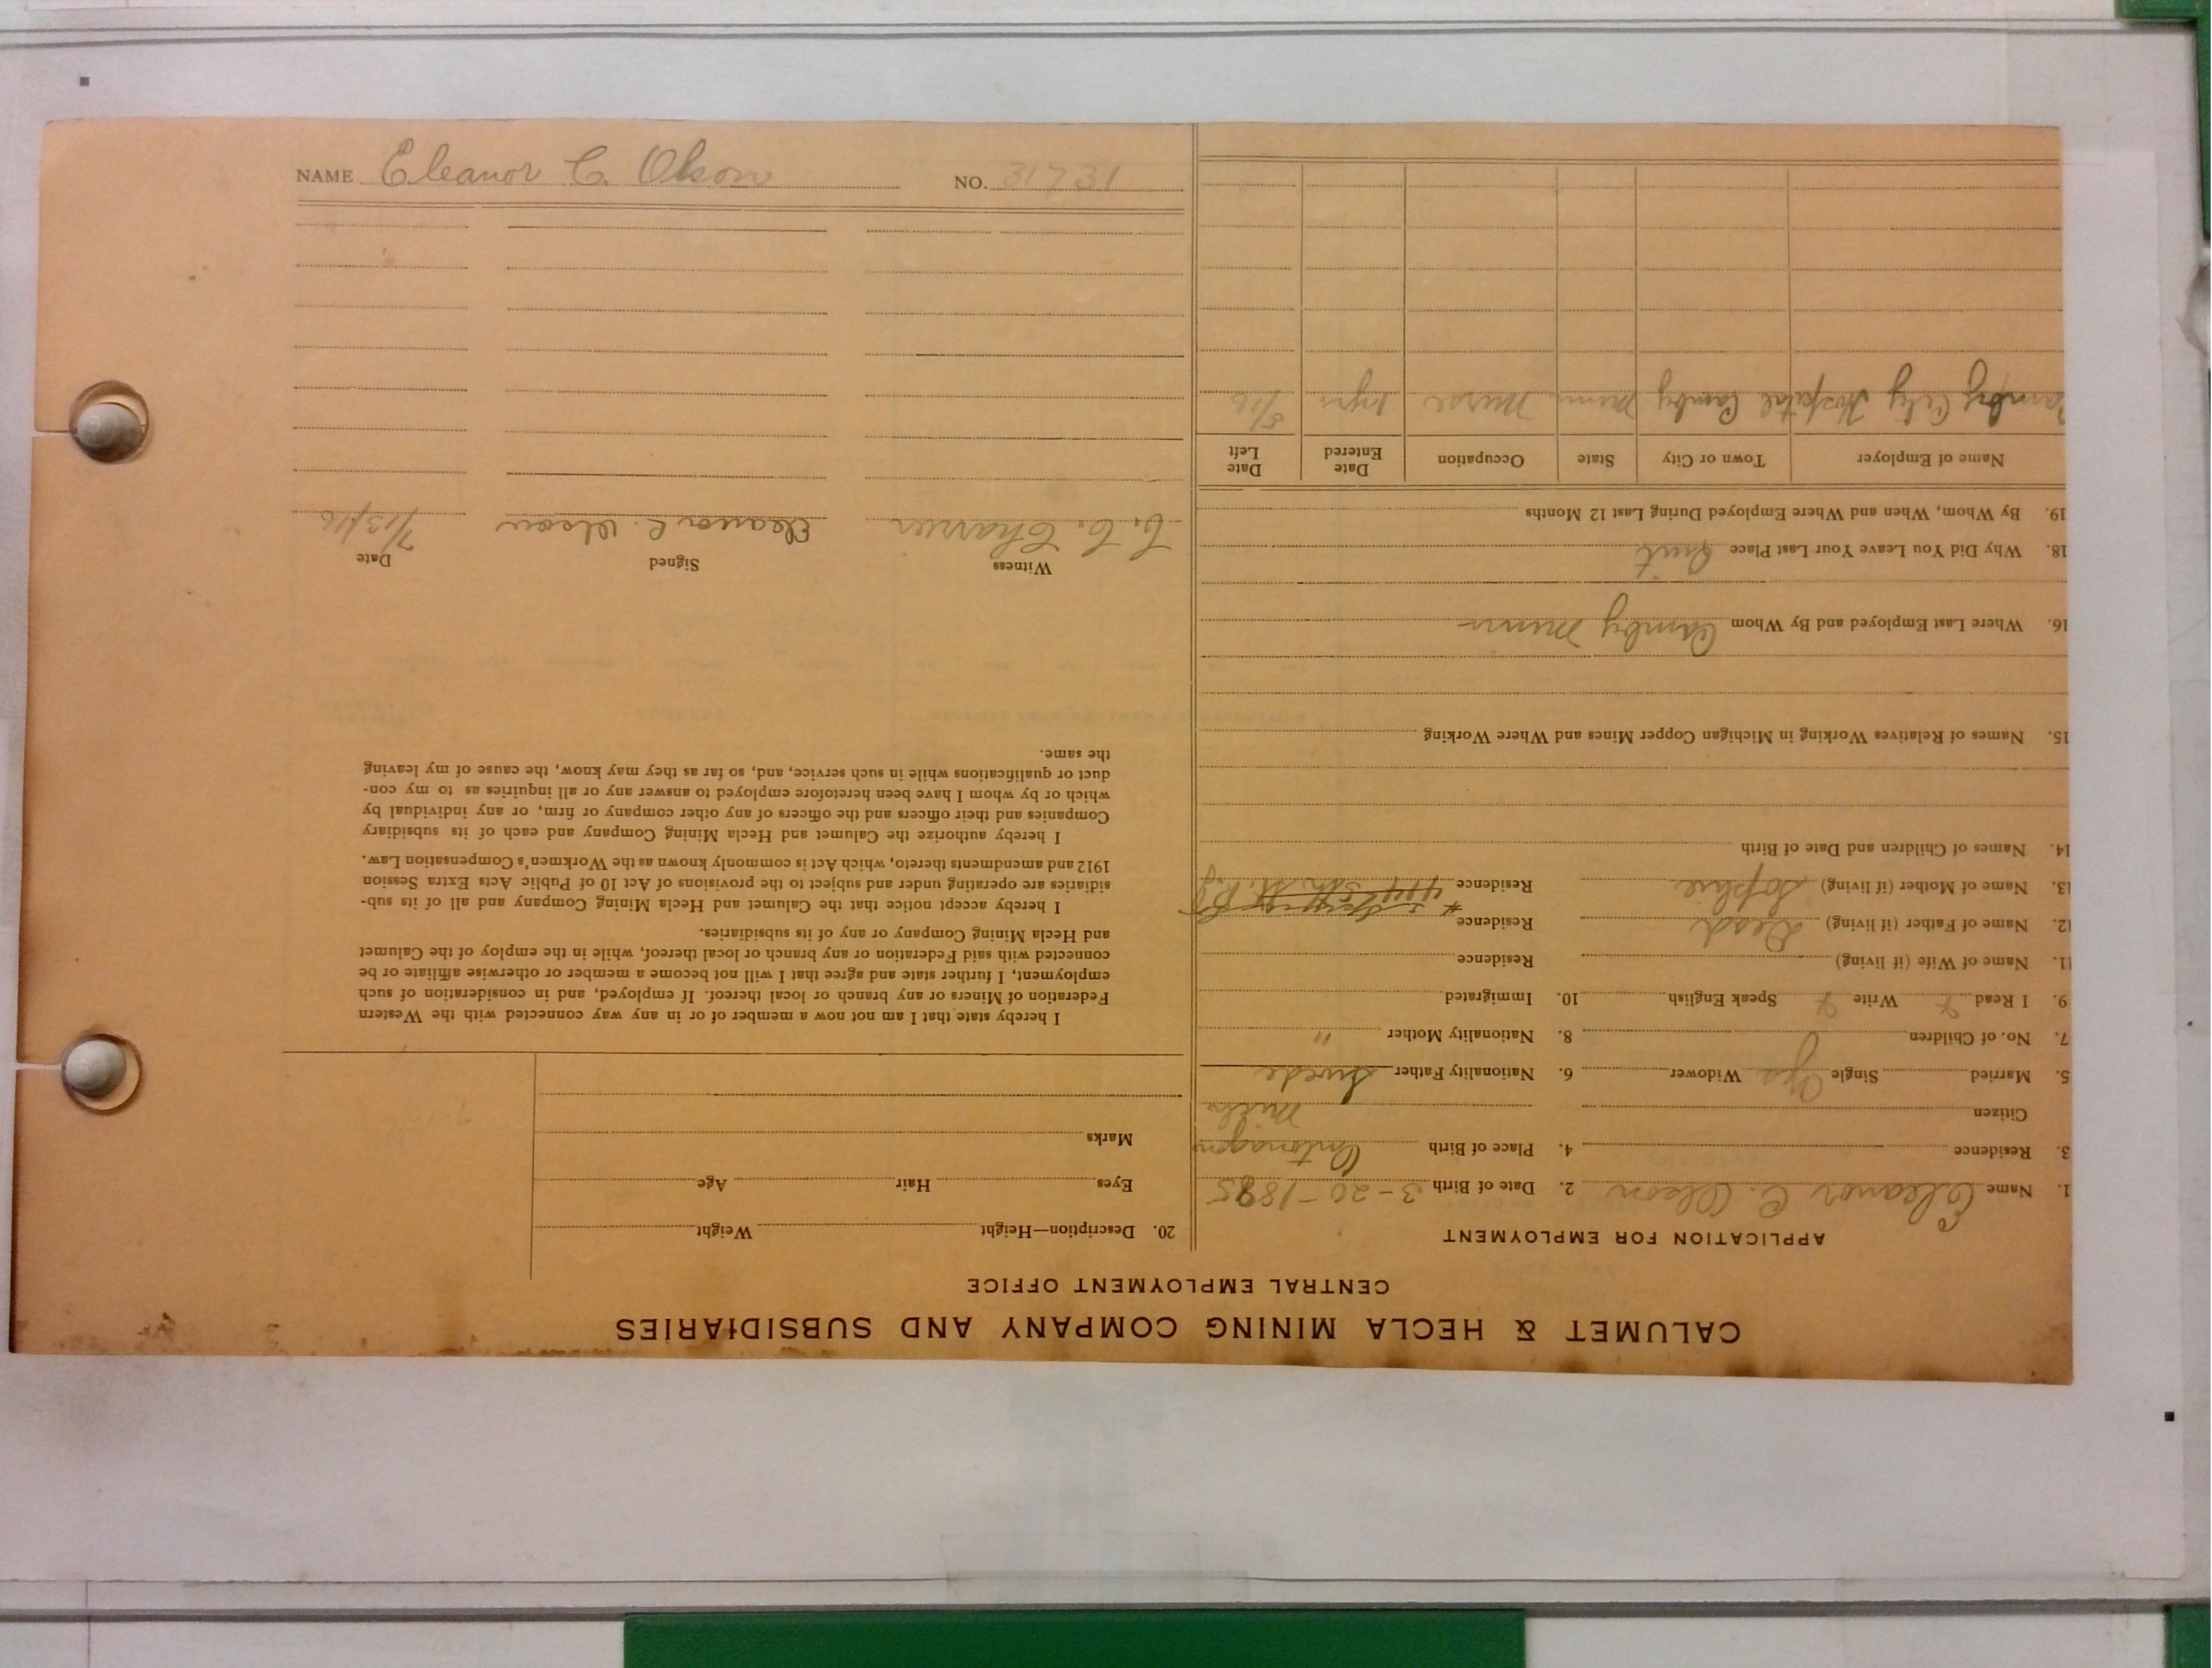 NAME Eleanor C. Olson NO. 31731
CALUMET & HECLA MINING COMPANY AND SUBSIDIARIES
CENTRAL EMPLOYMENT OFFICE
APPLICATION FOR EMPLOYMENT
1. Name Eleanor C. Olson 2. Date of Birth 3-20-1885
3. Residence 4. Place of Birth Ontonagon
Citizen Mich
5. Married Single Yes Widower 6. Nationality Father Swede
7. No. of Children 8. Nationality Mother "
9. I Read Write Speak English 10. Immigrated
11. Name of Wife (if living) Residence
12. Name of Father (if living) Dead Residence
13. Name of Mother (if living) Sophie Residence 414 5th St.
14. Names of Children and Date of Birth
15. Names of Relatives Working in Michigan Copper Mines and Where Working
16. Where Last Employed and By Whom Canby Minn
18. Why Did You Leave Your Last Place Quit
19. By Whom, When and Where Employed During Last 12 Months
Name of Employer Town or City State Occupation Date Entered Date Left
Canby City Hospital Canby Minn. Nurse yrs 5/16
20. Description—Height Weight
Eyes Hair Age
Marks
I hereby state that I am not now a member of or in any way connected with the Western
Federation of Miners or any branch or local thereof. If employed, and in consideration of such
employment, I further state and agree that I will not become a member or otherwise affiliate or be
connected with said Federation or any branch or local thereof, while in the employ of the Calumet
and Hecla Mining Company or any of its subsidiaries.
I hereby accept notice that the Calumet and Hecla Mining Company and all of its sub-
sidiaries are operating under and subject to the provisions of Act 10 of Public Acts Extra Session
1912 and amendments thereto, which Act is commonly known as the Workmen's Compensation Law.
I hereby authorize the Calumet and Hecla Mining Company and each of its subsidiary
Companies and their officers and the officers of any other company or firm, or any individual by
which or by whom I have been heretofore employed to answer any or all inquiries as to my con-
duct or qualifications while in such service, and, so far as they may know, the cause of my leaving
the same.
Witness Signed Date
Eleanor C. Olson 7/13/16